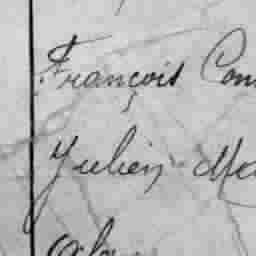 François Com
Julien Ma